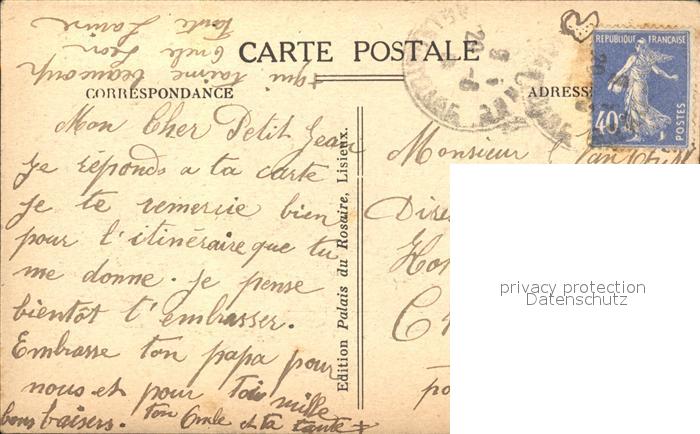 CARTE POSTALE
CORRESPONDANCE
ADRESSE
REPUBLIQUE FRANÇAISE
40
POSTES
Mon Cher Petit Jean
Je réponds a ta carte
je te remercie bien
pour l'itinéraire que tu
me donne. je pense
bientôt t'embrasser.
Embrasse ton papa pour
nous et pour toi mille
bons baisers. ton Oncle et ta tante ‡
‡ qui t'aime beaucoup
Oncle Leon
Tante
Edition Palais du Rosaire, Lisieux.
Monsieur
privacy protection
Datenschutz